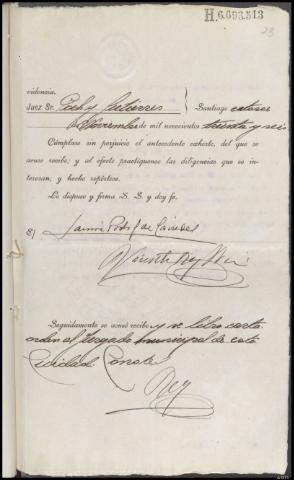 H.6.093.513
23
videncia.
Juez Sr.
Gutierrez
Santiago catorce
Noviembre de mil novecientos treinta y seis
Cúmplase sin perjuicio el antecedente exhorto, del que se
acuse recibo; y al efecto practíquense las diligencias que se in-
teresan; y hecho repórtese.
Lo dispuso y firma S. S. y doy fe.
E/
Seguidamente se acusó recibo y se libra carta
orden al Juzgado municipal de esta
Ciudad Conste
Rey